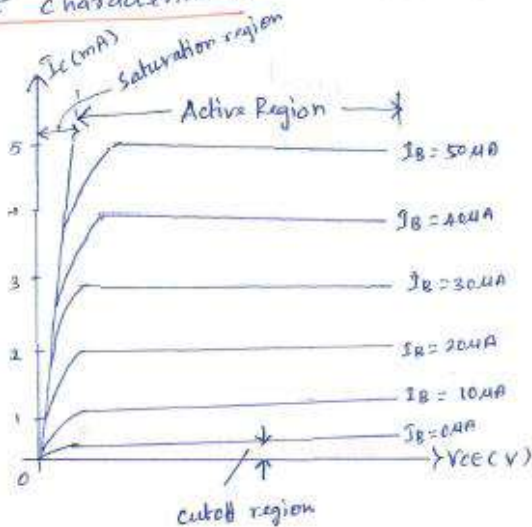 Characteri
Ic (mA)
Saturation region
Active Region
5
IB = 50 μA
IB = 40 μA
3
IB = 30 μA
2
IB = 20 μA
1
IB = 10 μA
IB = 0 μA
0
VCE (V)
Cutoff region